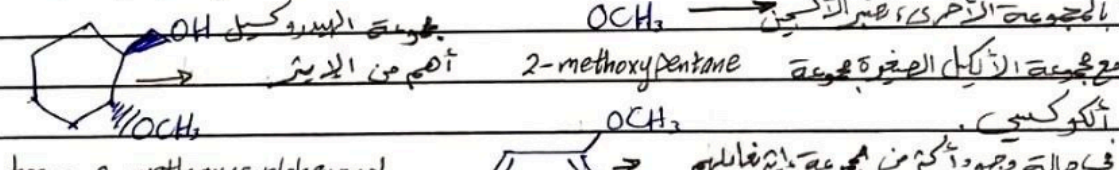 بالمجموعة الأخرى عبر الأكسجين → OCH₃
OH مجموعة الهيدروكسيل
مع مجموعة الألكيل الصغيرة مجموعة 2-methoxypentane أهم من الايثر →
ألكوكسي. OCH₃
OCH₃
في حالة وجود أكثر من مجموعة →